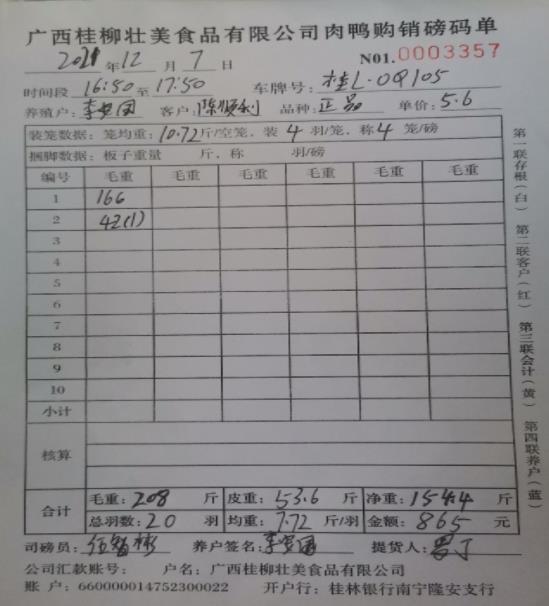 广西桂柳壮美食品有限公司肉鸭购销磅码单
2021年12月7日 N01.0003357
时间段 16:50至17:50 车牌号:桂L·0Q105
养殖户: 客户:陈顺利 品种:正品 单价:5.6
装笼数据:笼均重:10.72斤/空笼,装4羽/笼,称4笼/磅
捆脚数据:板子重量 斤,称 羽/磅
编号 毛重 毛重 毛重 毛重 毛重 毛重
1 166
2 42(1)
3
4
5
6
7
8
9
10
小计
核算
合计 毛重:208斤 皮重:53.6斤 净重:154.4斤
总羽数:20羽 均重:7.72斤/羽 金额:865元
司磅员: 养户签名: 提货人:
公司汇款账号: 户名:广西桂柳壮美食品有限公司
账 户:660000014752300022 开户行:桂林银行南宁隆安支行
第一联存根(白) 第二联客户(红) 第三联会计(黄) 第四联养户(蓝)